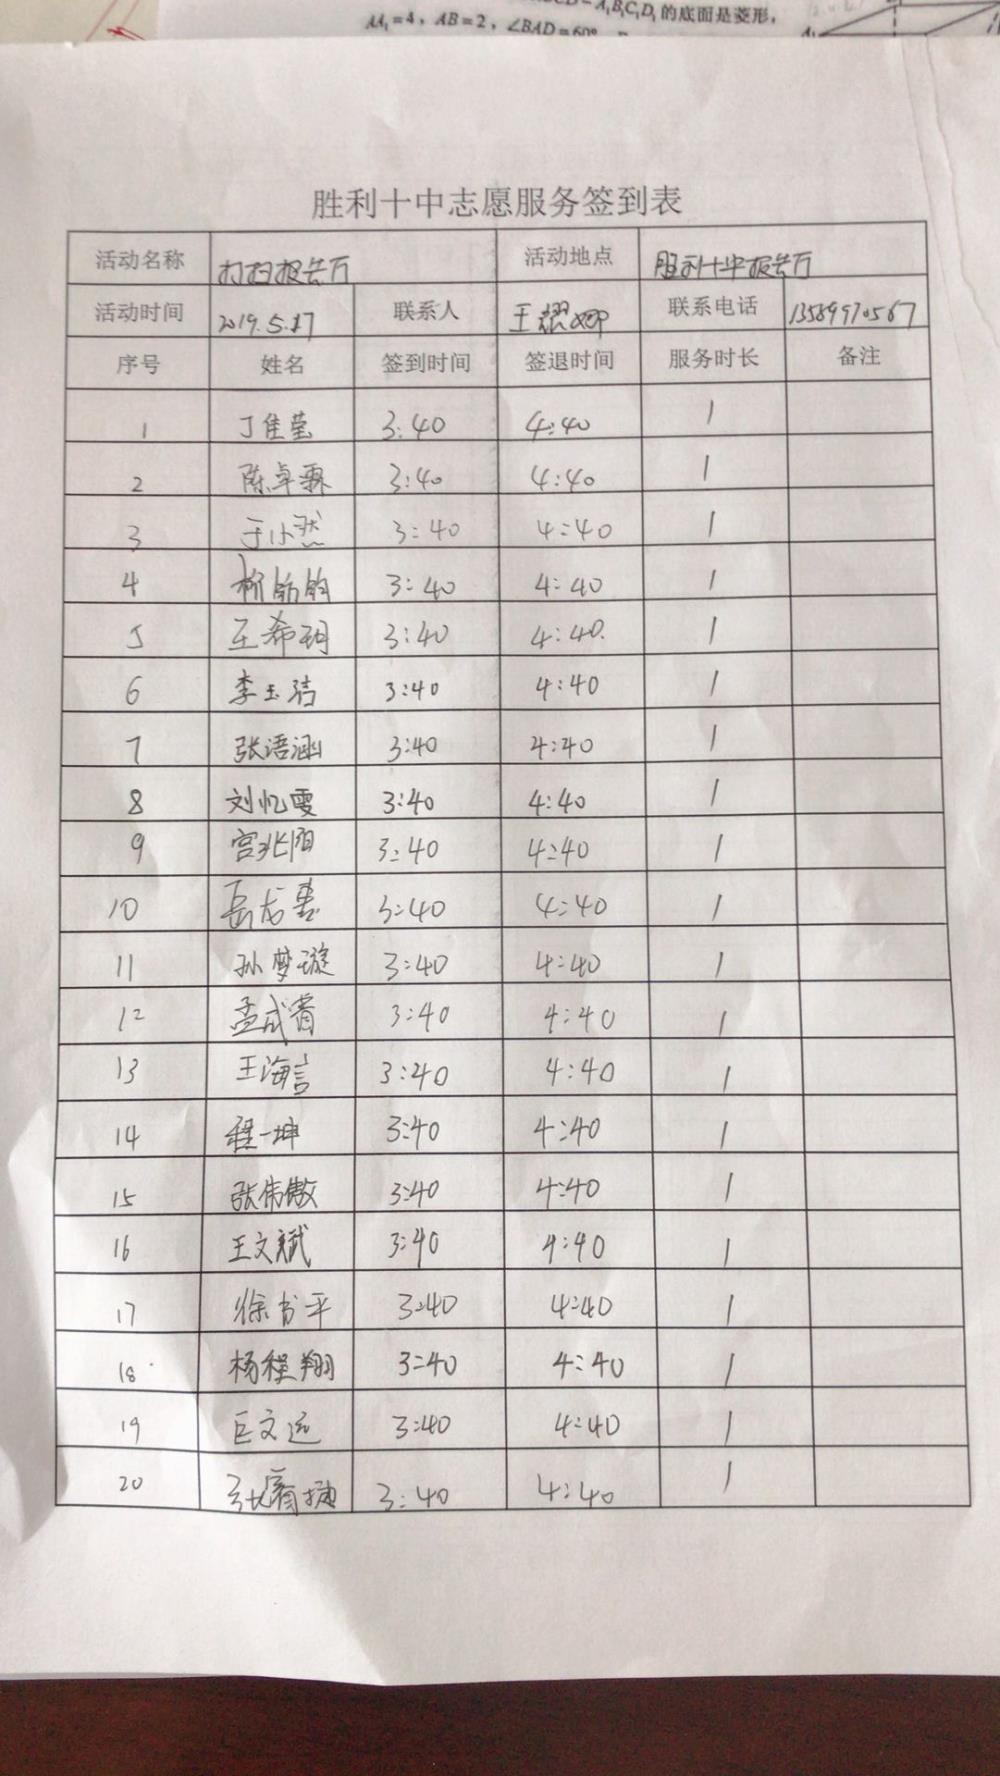 A₁B₁C₁D₁的底面是菱形，
AA₁=4，AB=2，∠BAD=60°
胜利十中志愿服务签到表
活动名称 打扫报告厅 活动地点 胜利十中报告厅
活动时间 2019.5.17 联系人 王 联系电话 13589970567
序号 姓名 签到时间 签退时间 服务时长 备注
1 丁佳莹 3:40 4:40 1
2 陈卓霖 3:40 4:40 1
3 于小然 3:40 4:40 1
4 3:40 4:40 1
5 王希玥 3:40 4:40 1
6 李玉洁 3:40 4:40 1
7 张语涵 3:40 4:40 1
8 刘忆雯 3:40 4:40 1
9 宫兆阳 3:40 4:40 1
10 3:40 4:40 1
11 孙梦璇 3:40 4:40 1
12 孟成蓍 3:40 4:40 1
13 王海言 3:40 4:40 1
14 程一坤 3:40 4:40 1
15 张伟傲 3:40 4:40 1
16 王文斌 3:40 4:40 1
17 徐书平 3:40 4:40 1
18 杨程翔 3:40 4:40 1
19 巨文远 3:40 4:40 1
20 3:40 4:40 1